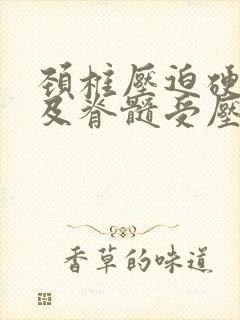 頚柱壓迫硬
及脊髓受壓
香草的味道